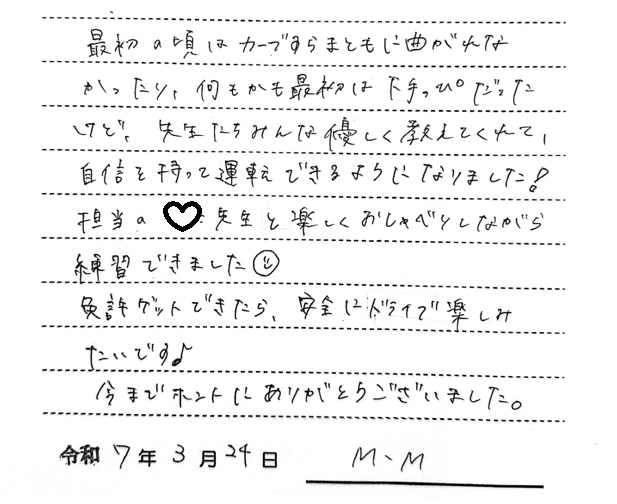 最初の頃はカーブすらまともに曲がれな
かったり、何もかも最初は下手っぴだった
けど、先生たちみんな優しく教えてくれて、
自信を持って運転できるようになりました!
担当の♡先生と楽しくおしゃべりしながら
練習できました☺
免許ゲットできたら、安全にドライブ楽しみ
たいです♪
今までホントにありがとうございました。
令和 7年 3月 24日 M、M